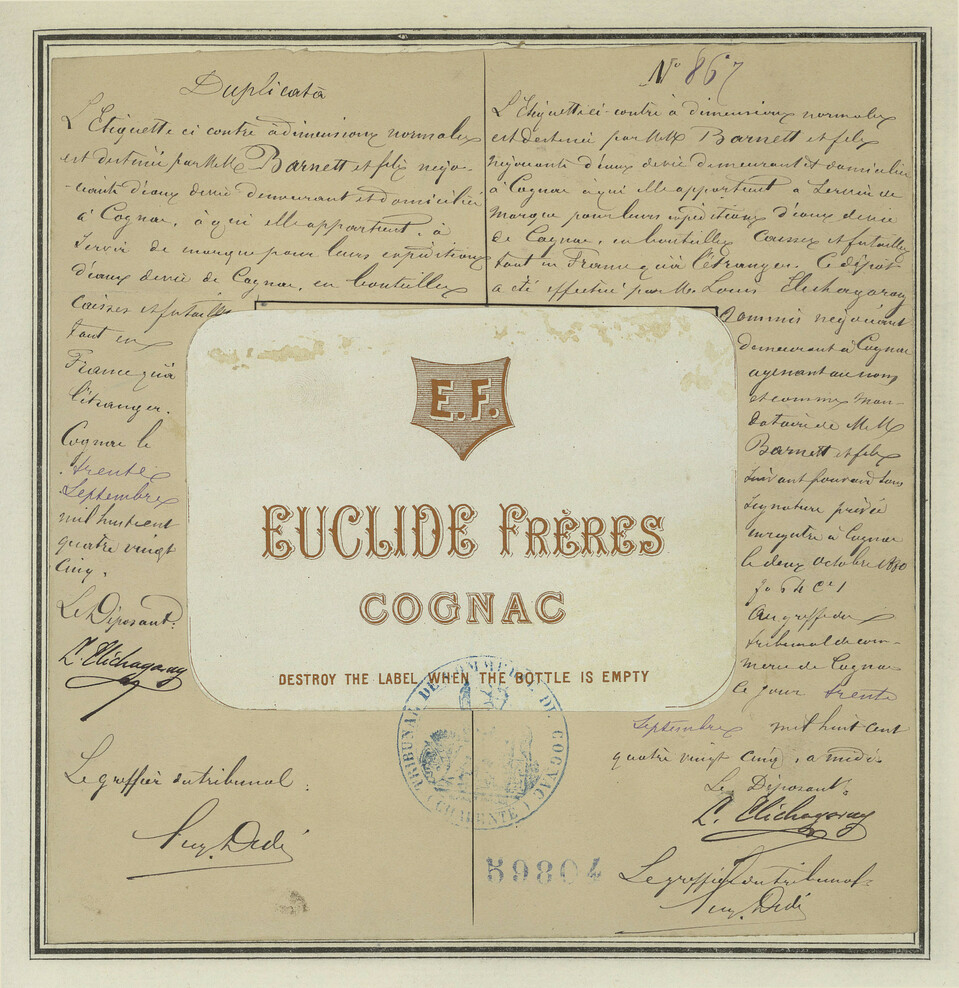 Duplicata
L'Etiquette ci contre à dimensions normales
est destinée par MM Barnett et felix négo-
-ciants d'eaux devie demeurant et domiciliés
à Cognac, à qui elle appartient, à
servir de marque pour leurs expéditions
d'eaux devie de Cognac, en bouteilles
Caisses et futailles
tant en
France qu'à
l'étranger.
Cognac le
trente
Septembre
mil huit cent
quatre vingt
Cinq.
Le Déposant:
L. Elichagaray
Le greffier du tribunal:
Dedé
No 867
L'Etiquette ci-contre à dimensions normales
est destinée par MM Barnett et felix
négociants d'eaux devie demeurant et domiciliés
à Cognac à qui elle appartient à servir de
marque pour leurs expéditions d'eaux devie
de Cognac, en bouteilles Caisses et futailles
tant en France qu'à l'étranger. Ce dépôt
a été effectué par M. Louis Elichagaray
Commis négociant
demeurant à Cognac
agissant au nom
et comme man-
dataire de MM
Barnett et felix
suivant pouvoir sous
signature privée
enregistré à Cognac
le deux octobre 1880
fo 64 Ce 1
Au greffe du
tribunal de com-
merce de Cognac
le jour trente
Septembre mil huit cent
quatre vingt Cinq, à midi.
Le Déposant:
L. Elichagaray
Le greffier du tribunal:
Dedé
E.F.
EUCLIDE FRÈRES
COGNAC
DESTROY THE LABEL WHEN THE BOTTLE IS EMPTY
TRIBUNAL DE COMMERCE DE COGNAC
(CHARENTE)
59804